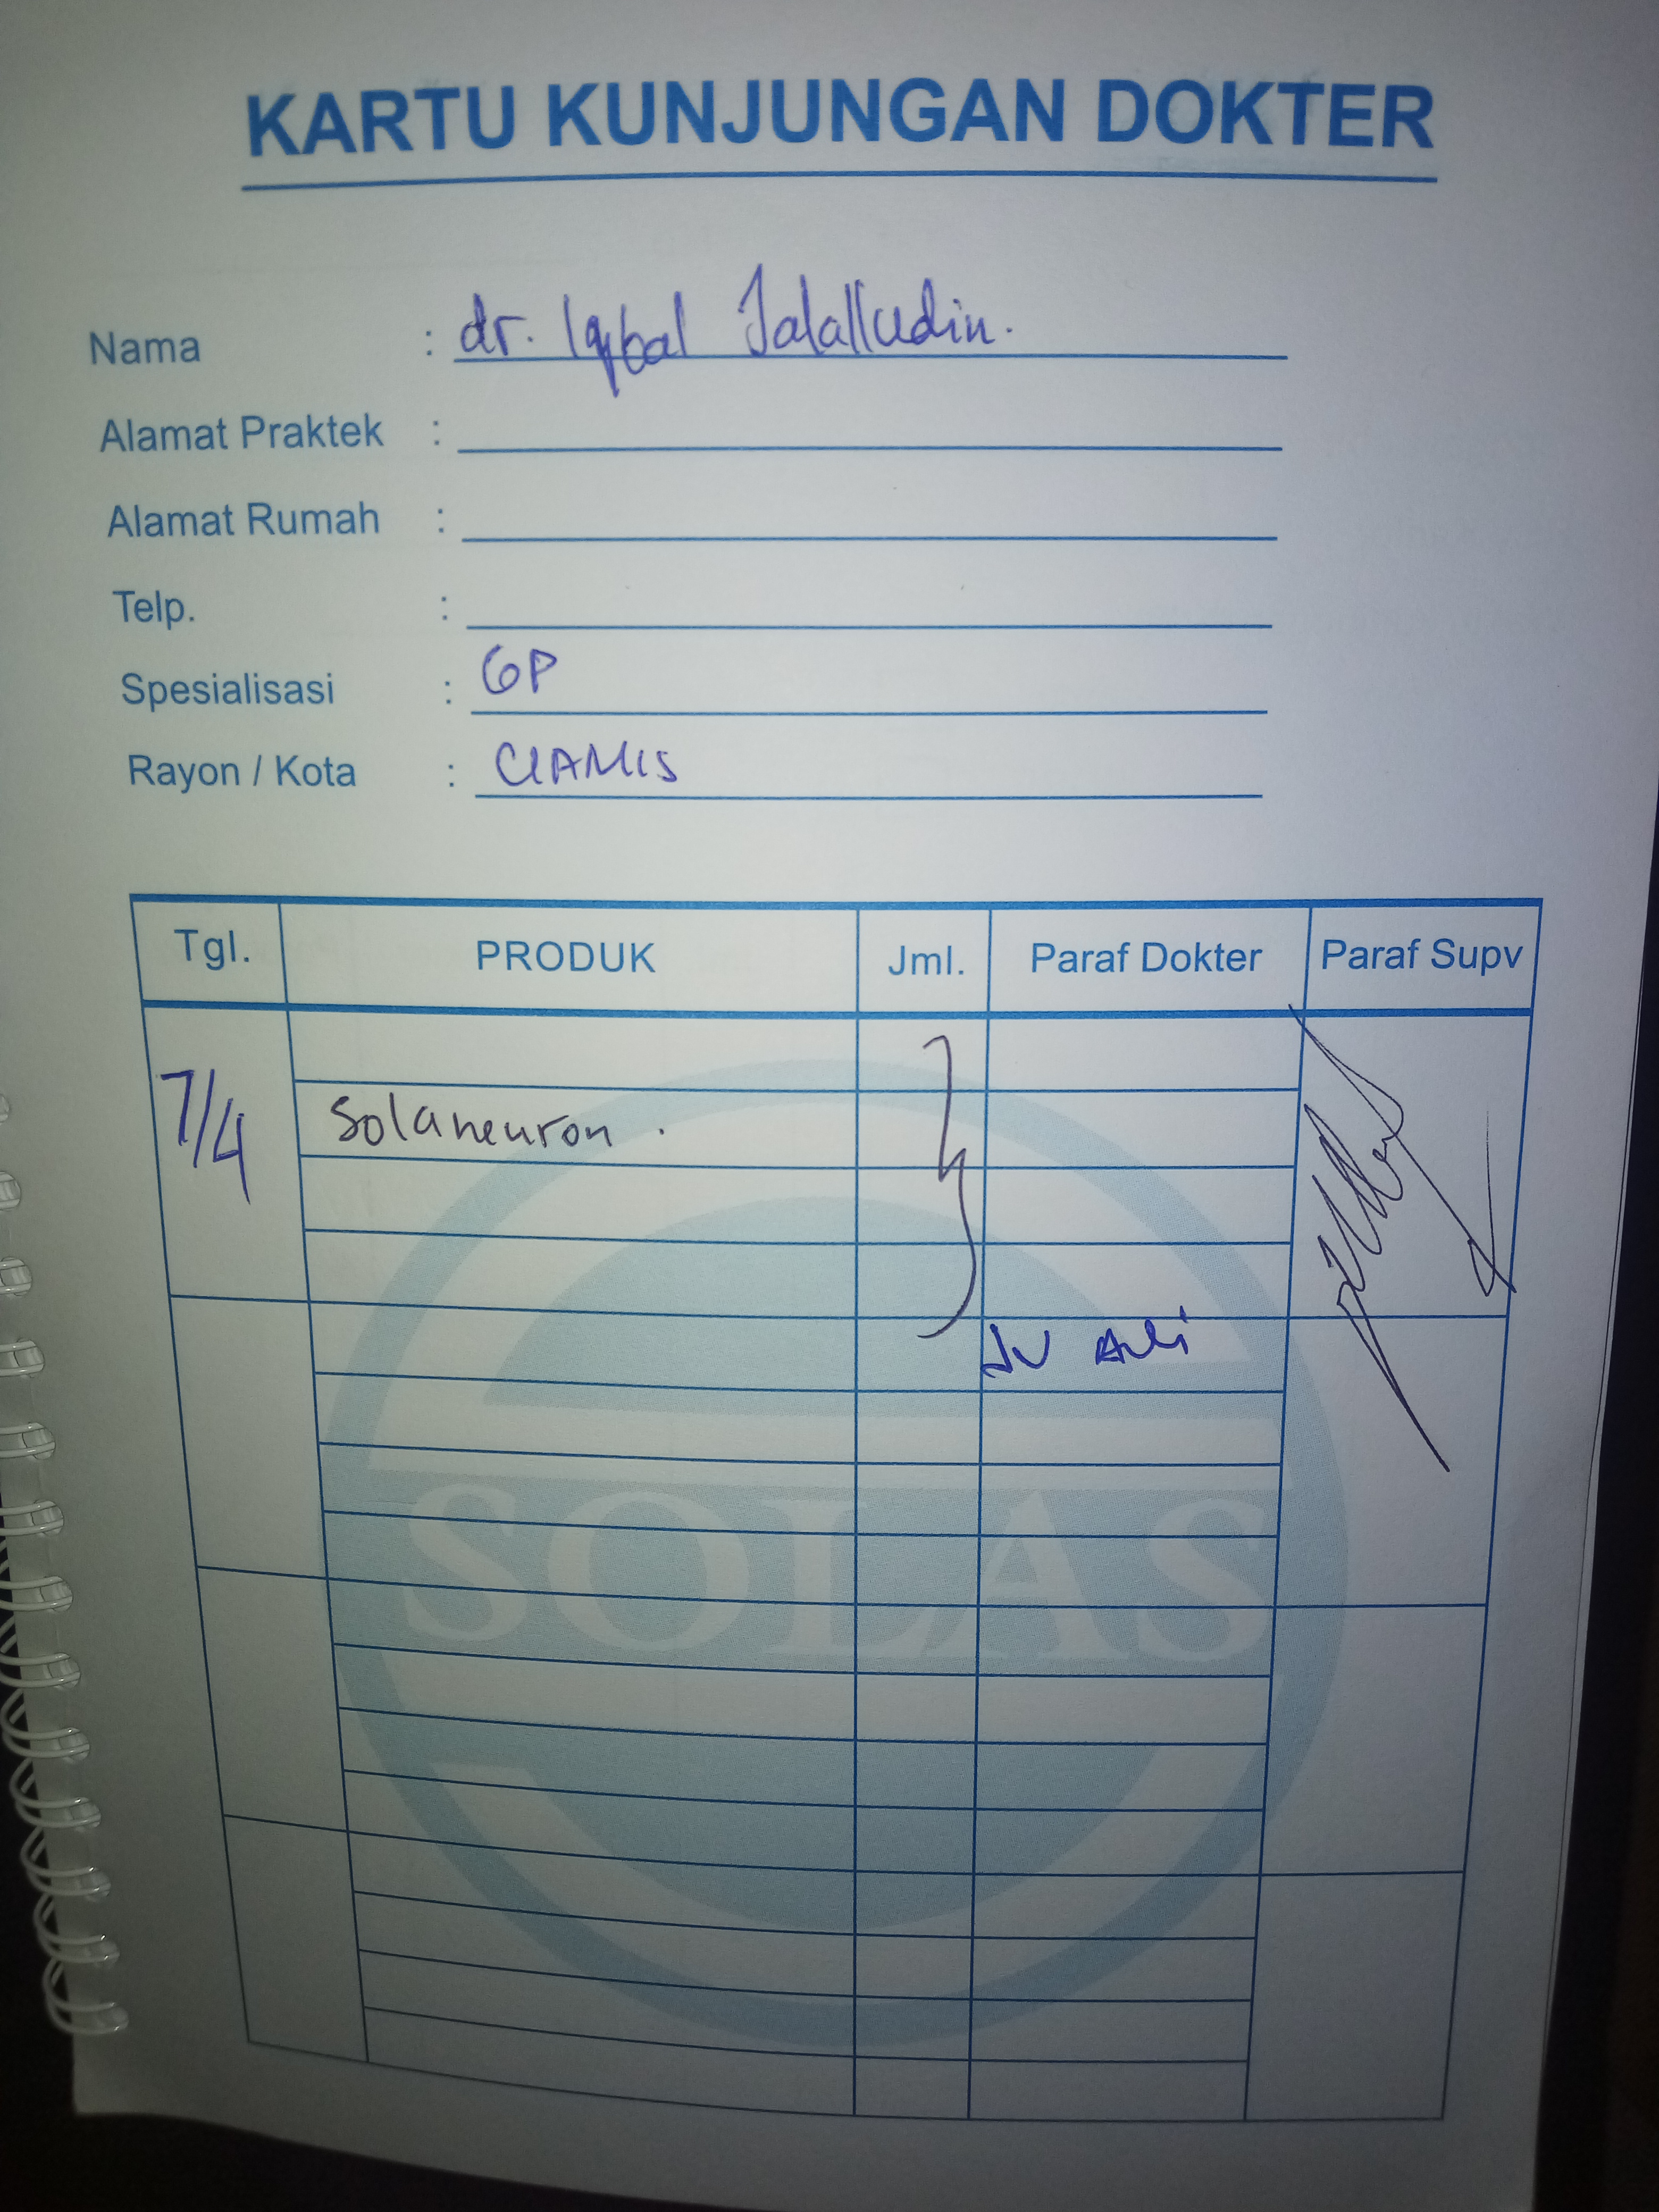 KARTU KUNJUNGAN DOKTER
Nama : dr. Iqbal Jalalludin.
Alamat Praktek :
Alamat Rumah :
Telp. :
Spesialisasi : GP
Rayon / Kota : CIAMIS
Tgl. PRODUK Jml. Paraf Dokter Paraf Supv
7/4 Solaneuron .
SOLAS